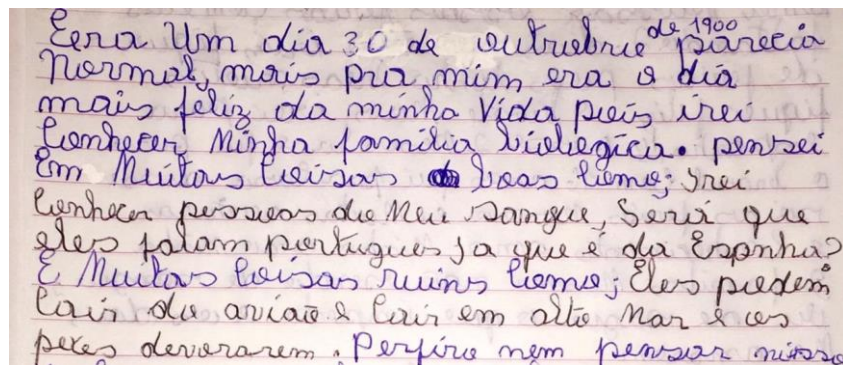 Eera Um dia 30 de outrubrio de 1900 parecia
Normal, mais pra mim era o dia
mais feliz da minha Vida pois irei
Conhecer Minha família biologica. pensei
Em Muitas Coisas boas Como; irei
Conhecer pessoas do Meu sangue, Será que
eles falam portugues ja que é da Espanha?
E Muitas Coisas ruins Como; Eles podem
Cair do avião e Cair em alto Mar e os
pexes devorarem. Perfiro nem pensar nisso